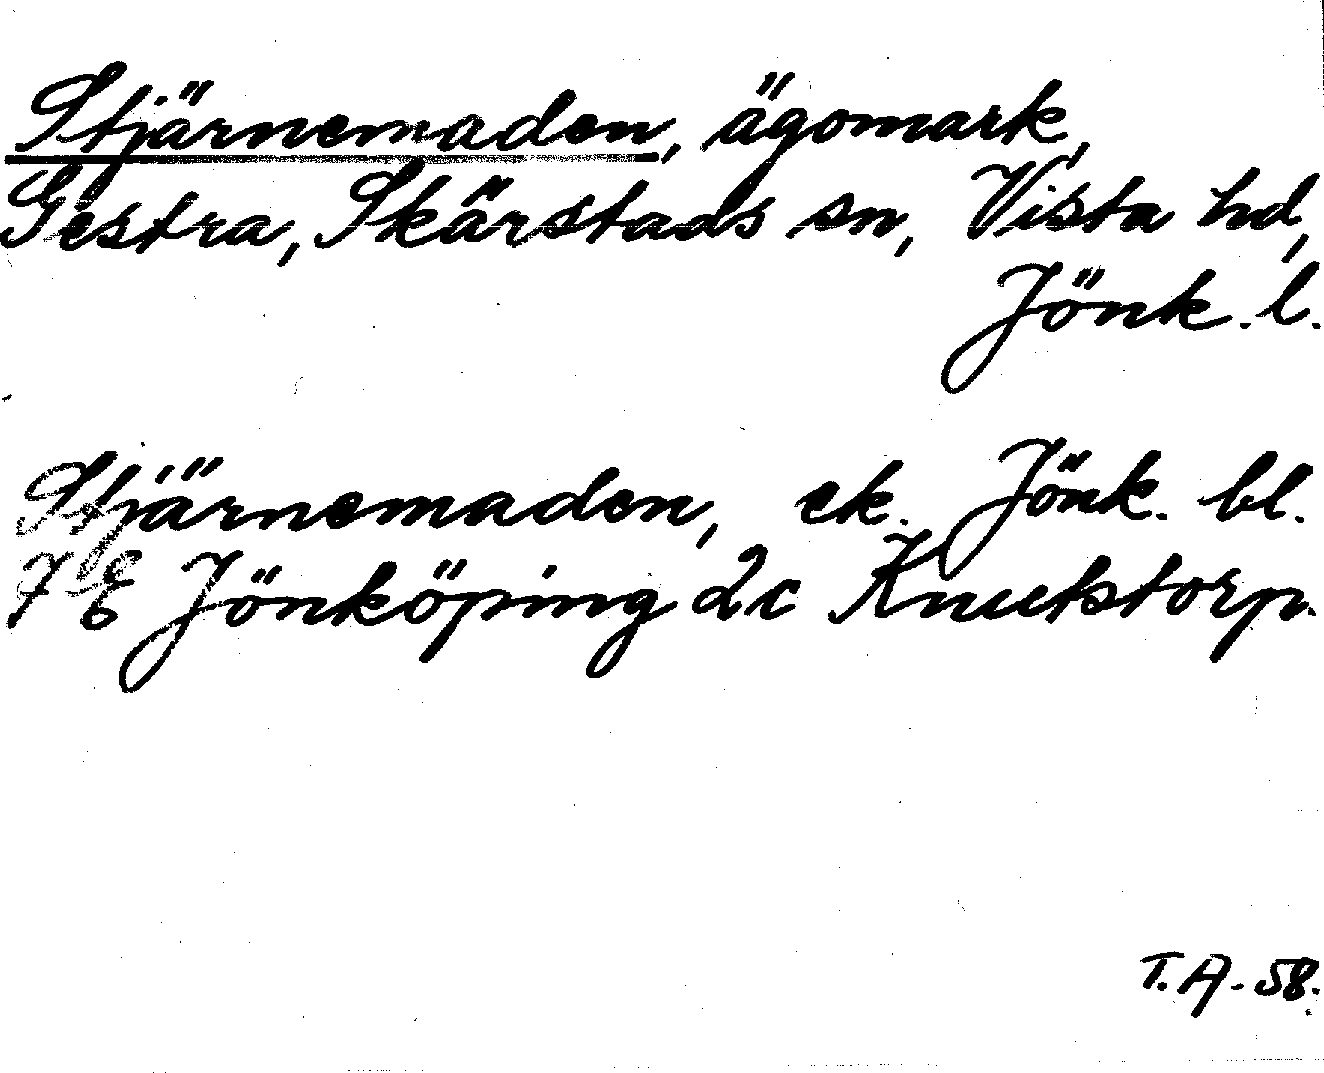 Stjärnemaden, ägomark,
Gestra, Skärstads sn, Vista hd,
Jönk. l.
Stjärnemaden, ek. Jönk. bl.
7 E Jönköping 2c Knutstorp.
T.A-58.